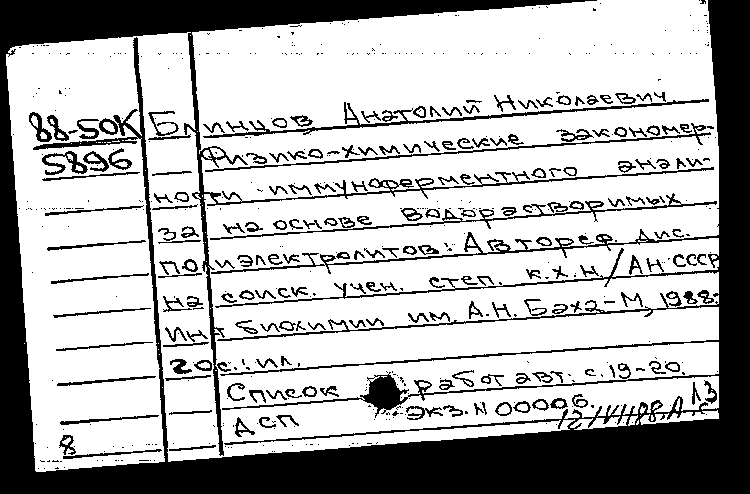 88-50К Блинцов Анатолий Николаевич.
5896 Физико-химические закономер-
ности иммуноферментного анали-
за на основе водорастворимых
полиэлектролитов: Автореф. дис.
на соиск. учен. степ. к.х.н./АН СССР
Ин-т биохимии им. А.Н. Баха-М, 1988-
20с.: ил.
Список работ авт: с.19-20.
ДСП Экз. N 00006.
8